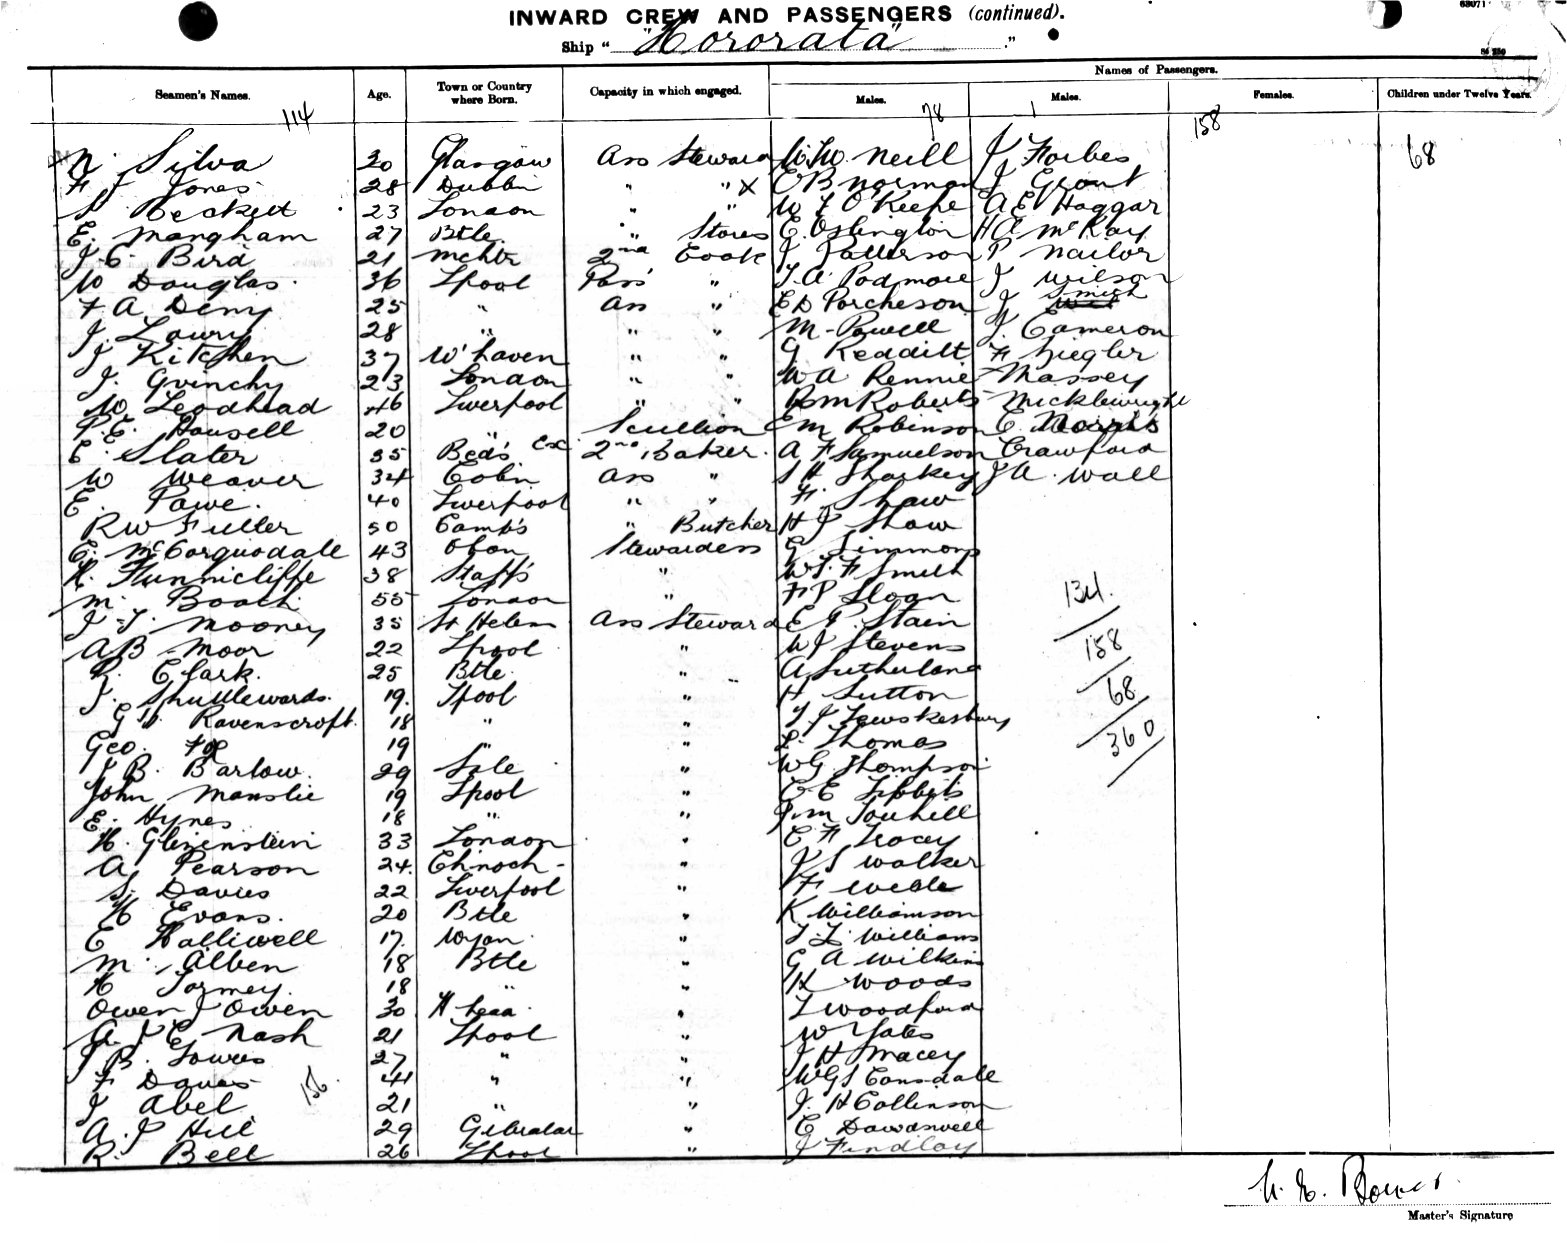 INWARD CREW AND PASSENGERS (continued).
Ship "Hororata"
Names of Passengers.
Seamen's Names. Age. Town or Country where Born. Capacity in which engaged. Males. Males. Females. Children under Twelve Years.
114 78 1 158 68
N. Silva 20 Glasgow Ass Steward W. W. Neill J Forbes
F J Jones 28 Dublin " " X C B Norman J Grant
Beckett 23 London " " W F O'Keefe A E Haggar
E. Mangham 27 Btle " Stores C. Oslington H A McKay
J. C. Bird 21 Mchtr 2nd Cook J Patterson P Nailor
W Douglas 36 Lpool Pass " T. A. Podmore J Wilson
F A Deny 25 " Ass " E D Porcheson J Smith
J. Lowry 28 " " " M. Powell J. Cameron
J Kitchen 37 W'haven " " G Redditt F Ziegler
J. Grinchy 23 London " " W A Rennie Massey
W. Leodhead 46 Liverpool " " R M Roberts Micklewright
P. E. Dousell 20 " Scullion E M Robinson C. Norris
E. Slater 35 Beds Ex 2nd Baker. A F Samuelson Crawford
W Weaver 34 Eobin Ass " S H Sharkey J A. Wall
E. Pawe. 40 Liverpool " " F. Shaw
R W Fuller 50 Camb's " Butcher H J Shaw
C. McCorquodale 43 Oban Stewardess G Simmons
H. Hunnicliffe 38 Staff's " W. F Smith
M. Booth 55 London " F P Sloan 134
J. T. Mooney 35 St Helens Ass Steward E P. Stain
A B Moor 22 Lpool " W J Stevens 158
R. Clark. 25 Btle " A Sutherland
J. Shuttlewards. 19. Lpool " H Sutton 68
G Ravenscroft. 18 " " T J Tewskesbury
Geo. Fox 19 " " L. Thomas 360
J B. Barlow. 29 Sale " W G. Thompson
John Manslie 19 Lpool " C E Tibbits
E. Hynes 18 " " J. M Touhill
H. Glenenstein 33 London " C F Tracey
A. Pearson 24. Ehnoch- " J S Walker
S. Davies 22 Liverpool " F Weale
H Evans. 20 Btle " K Williamson
E Halliwell 17. Wgan " T. L. Williams
M. Alben 18 Btle " G A Wilkins
H Tormey. 18 " " H Woods
Owen J Owen 30 H'head " T Woodford
A. J E Nash 21 Lpool " W Yates
J B. Towers 27 " " J H Macey
F Davies 41 " " W G S Consdale
J Abel. 156. 21 " " J. H Collinson
A. J Hill 29 Gibraltar " C Dowdswell
R. Bell 26 Lpool " J Findlay
Master's Signature